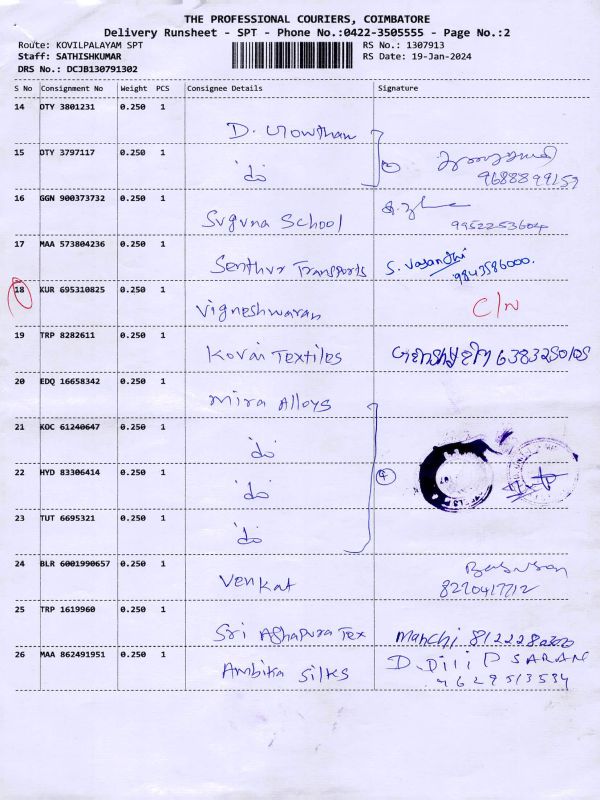 THE PROFESSIONAL COURIERS, COIMBATORE
Delivery Runsheet - SPT - Phone No.:0422-3505555 - Page No.:2
Route: KOVILPALAYAM SPT RS No.: 1307913
Staff: SATHISHKUMAR RS Date: 19-Jan-2024
DRS No.: DCJB130791302
S No Consignment No Weight PCS Consignee Details Signature
14 OTY 3801231 0.250 1 D. Gowthan
15 OTY 3797117 0.250 1 'do 9688899159
16 GGN 900373732 0.250 1 Suguna School 9952253604
17 MAA 573804236 0.250 1 Senthur Transports S. Vasanthi 9843586000.
18 KUR 695310825 0.250 1 Vigneshwaran C/N
19 TRP 8282611 0.250 1 Kovai Textiles 6383250105
20 EDQ 16658342 0.250 1 Mira Alloys
21 KOC 61240647 0.250 1 'do
22 HYD 83306414 0.250 1 'do 4
23 TUT 6695321 0.250 1 'do
24 BLR 6001990657 0.250 1 Venkat 8220417712
25 TRP 1619960 0.250 1 Sri Ashapura Tex Manchi 8122280300
26 MAA 862491951 0.250 1 Ambika Silks D. Dilip SARAN
9629513534